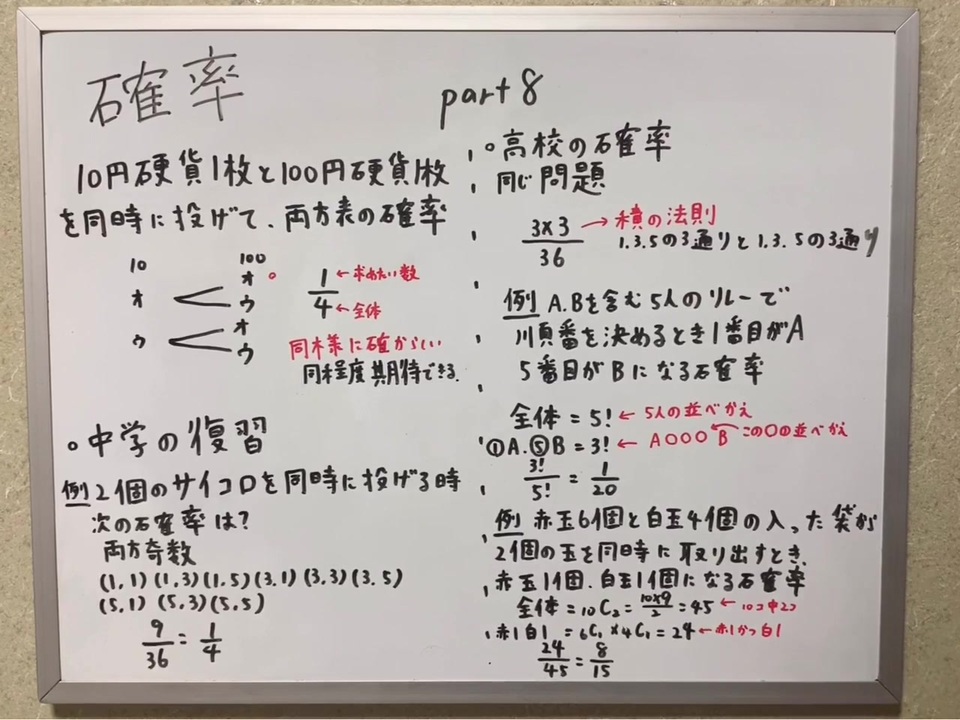 確率 part 8
10円硬貨1枚と100円硬貨1枚
を同時に投げて、両方表の確率
10 100
オ オ ○
ウ
ウ オ
ウ
1/4
←求めたい数
←全体
同様に確からしい
同程度期待できる.
○中学の復習
例 2個のサイコロを同時に投げる時
次の確率は?
両方奇数
(1,1)(1,3)(1,5)(3,1)(3,3)(3,5)
(5,1)(5,3)(5,5)
9/36 = 1/4
○高校の確率
同じ問題
3×3/36 →積の法則
1.3.5の3通りと1.3.5の3通り
例 A.Bを含む5人のリレーで
順番を決めるとき1番目がA
5番目がBになる確率
全体=5! ←5人の並べかえ
①A.⑤B=3! ←A○○○B この○の並べかえ
3!/5! = 1/20
例 赤玉6個と白玉4個の入った袋から
2個の玉を同時に取り出すとき、
赤玉1個、白玉1個になる確率
全体=₁₀C₂=10×9/2=45 ←10コ中2コ
赤1白1=₆C₁×₄C₁=24 ←赤1かつ白1
24/45=8/15